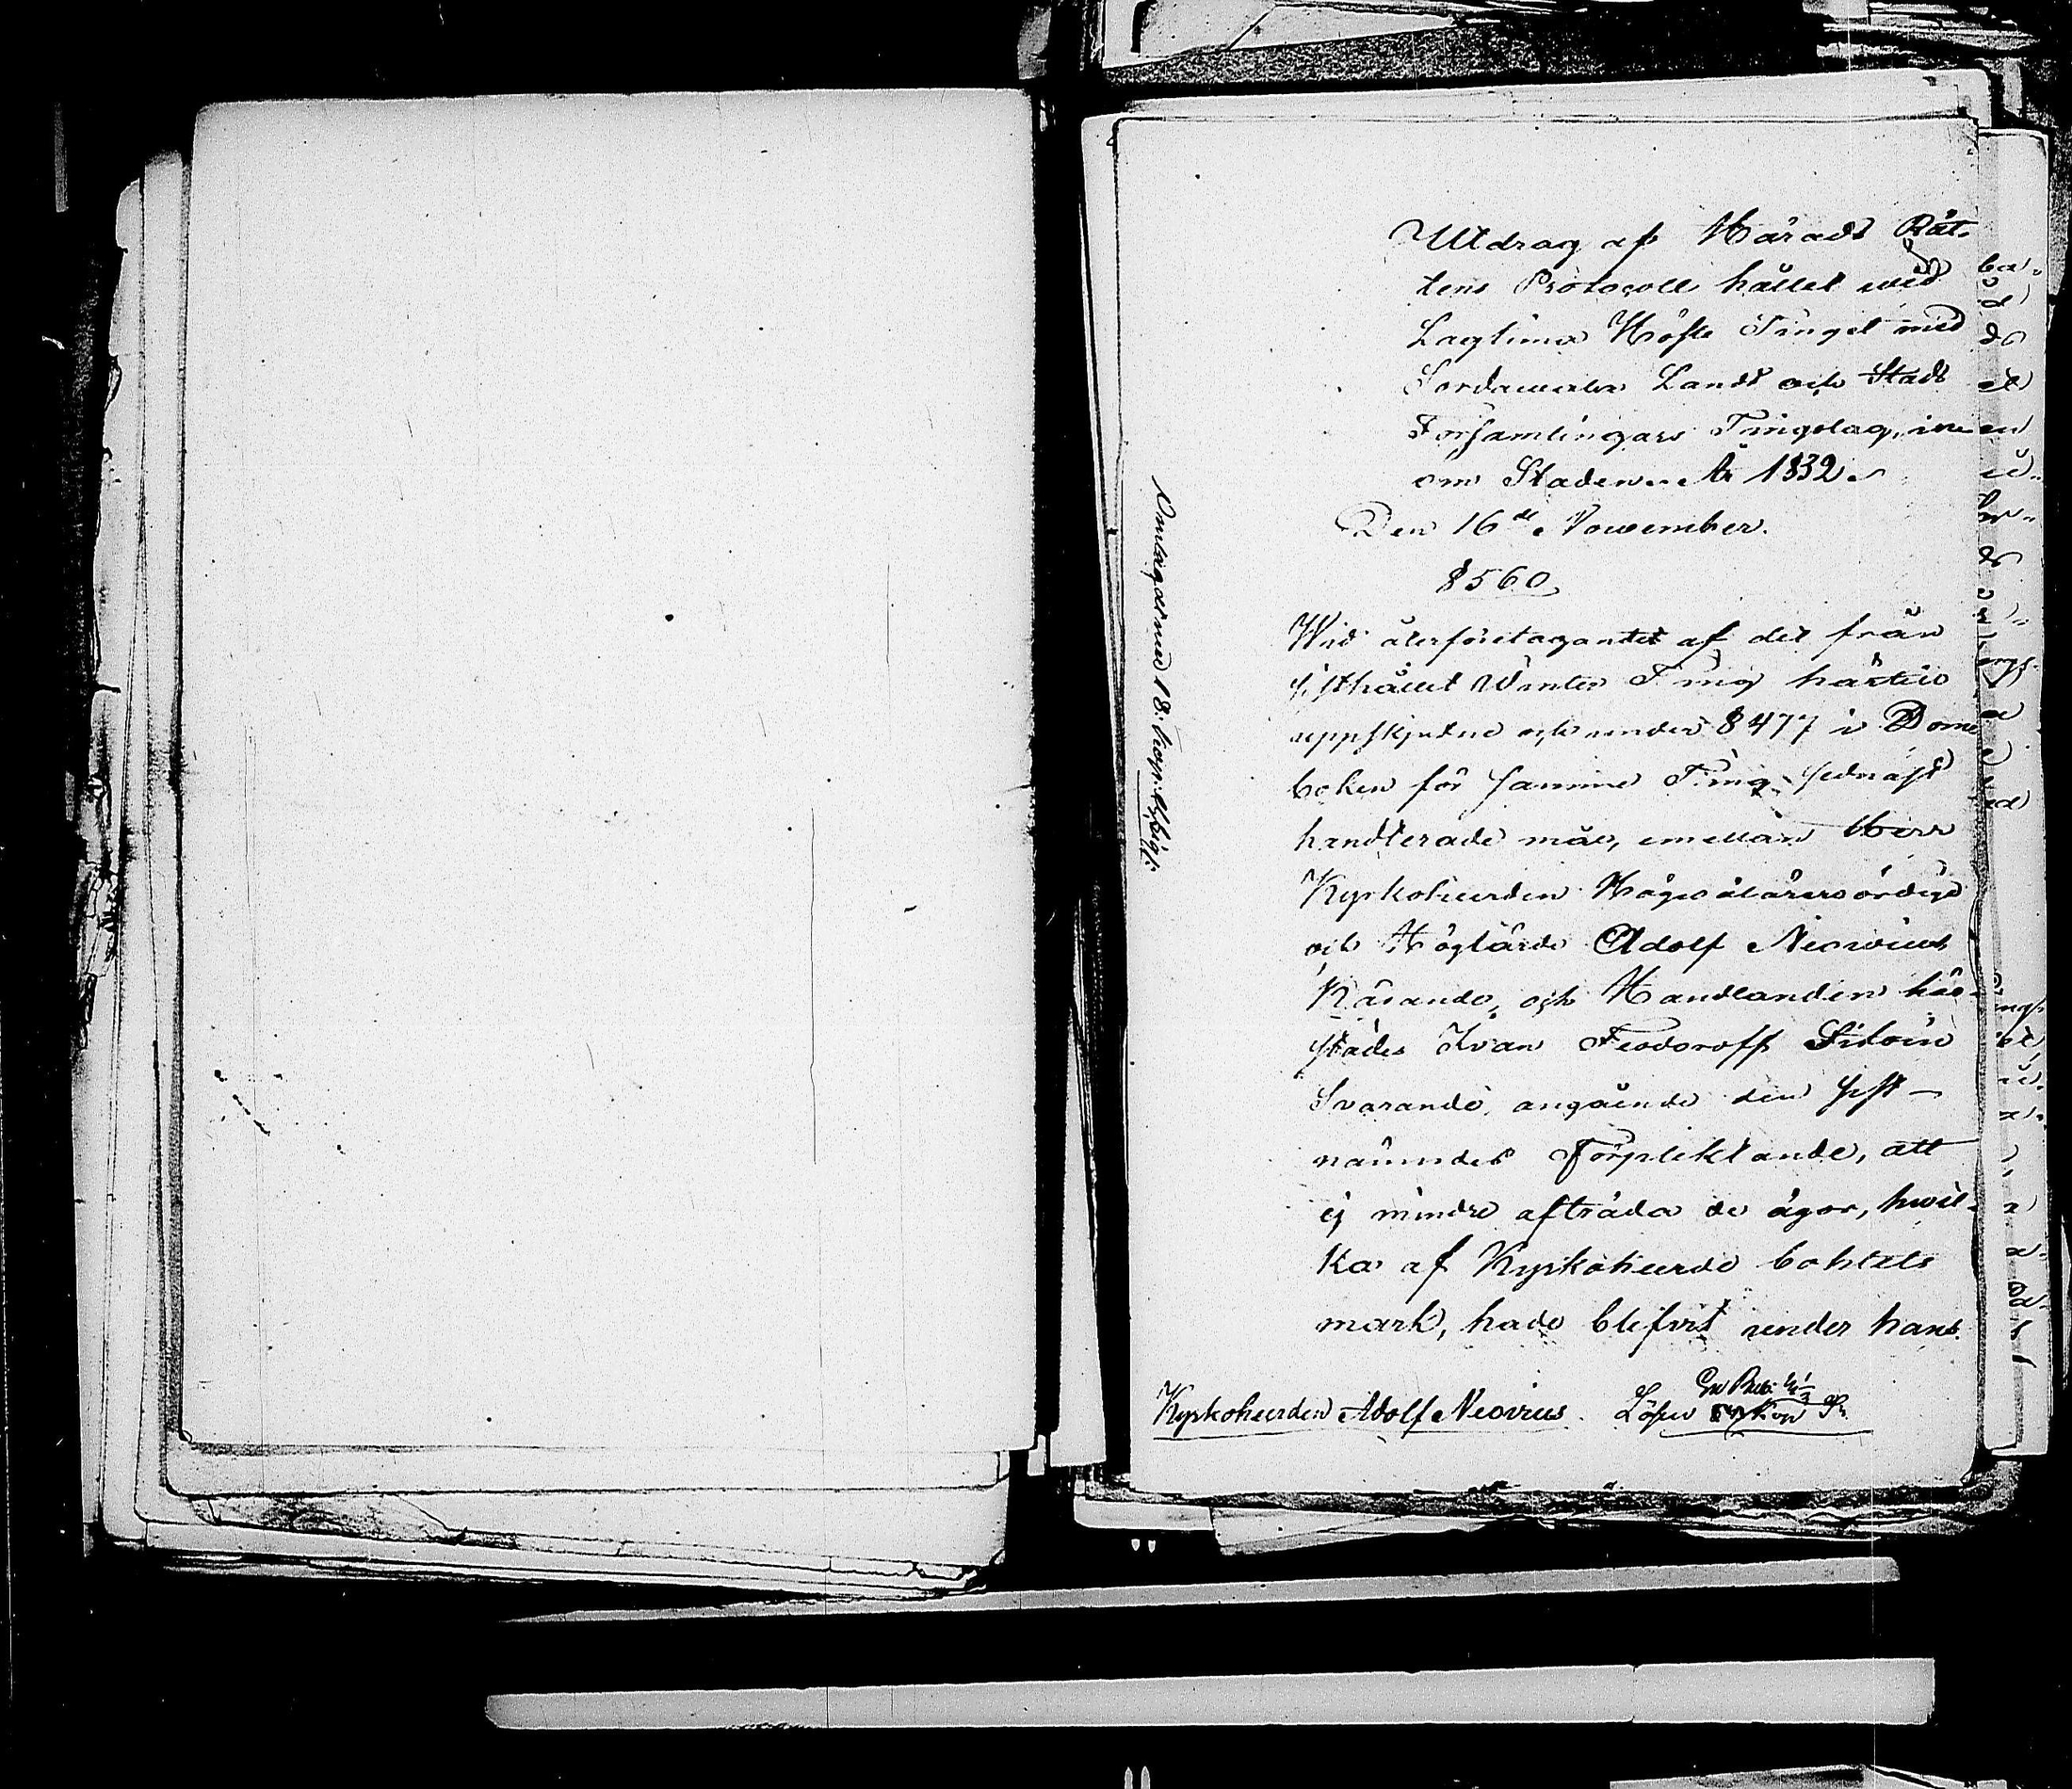 Utdrag af Härads Rät-
tens Protocoll hållet wid
Lagtima Höste Tinget med
Sordawala Lands och Stads
Församlingars Tingslag, inn-
om Staden År 1832.
Den 16de November.
§ 560
Wid återföretagandet af det från
sisthållet Winter Ting härtill
uppskjutne och under § 477 i Dome
boken för samme Ting sednast
handterade mål, emellan Herr
Kyrkoherden Högwälärewördige
och Höglärde Adolf Neovius
Kärande, och Handlanden här-
städes Ivan Feodoroff Siloin
Svarande, angående den sist-
nämndes Förpliktande, att
ej mindre afträda de ägor, hwil-
ka af Kyrkoherde bohlets
mark, hade blifvit under hans
Kyrkoherden Adolf Neovius. Lösen